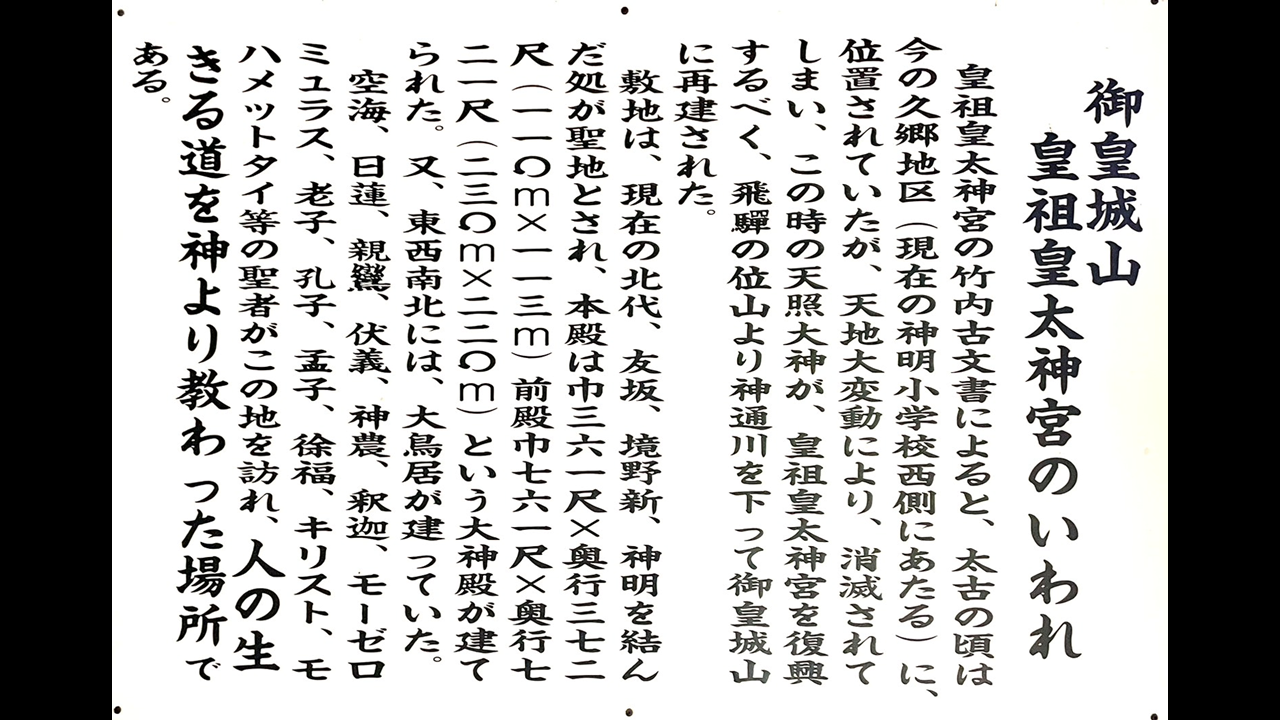 御皇城山
皇祖皇太神宮のいわれ
皇祖皇太神宮の竹内古文書によると、太古の頃は
今の久郷地区（現在の神明小学校西側にあたる）に、
位置されていたが、天地大変動により、消滅されて
しまい、この時の天照大神が、皇祖皇太神宮を復興
するべく、飛驒の位山より神通川を下って御皇城山
に再建された。
敷地は、現在の北代、友坂、境野新、神明を結ん
だ処が聖地とされ、本殿は巾三六一尺×奥行三七二
尺（一一〇ｍ×一一三ｍ）前殿巾七六一尺×奥行七
二一尺（二三〇ｍ×二二〇ｍ）という大神殿が建て
られた。又、東西南北には、大鳥居が建っていた。
空海、日蓮、親鸞、伏義、神農、釈迦、モーゼロ
ミュラス、老子、孔子、孟子、徐福、キリスト、モ
ハメットタイ等の聖者がこの地を訪れ、人の生
きる道を神より教わった場所で
ある。